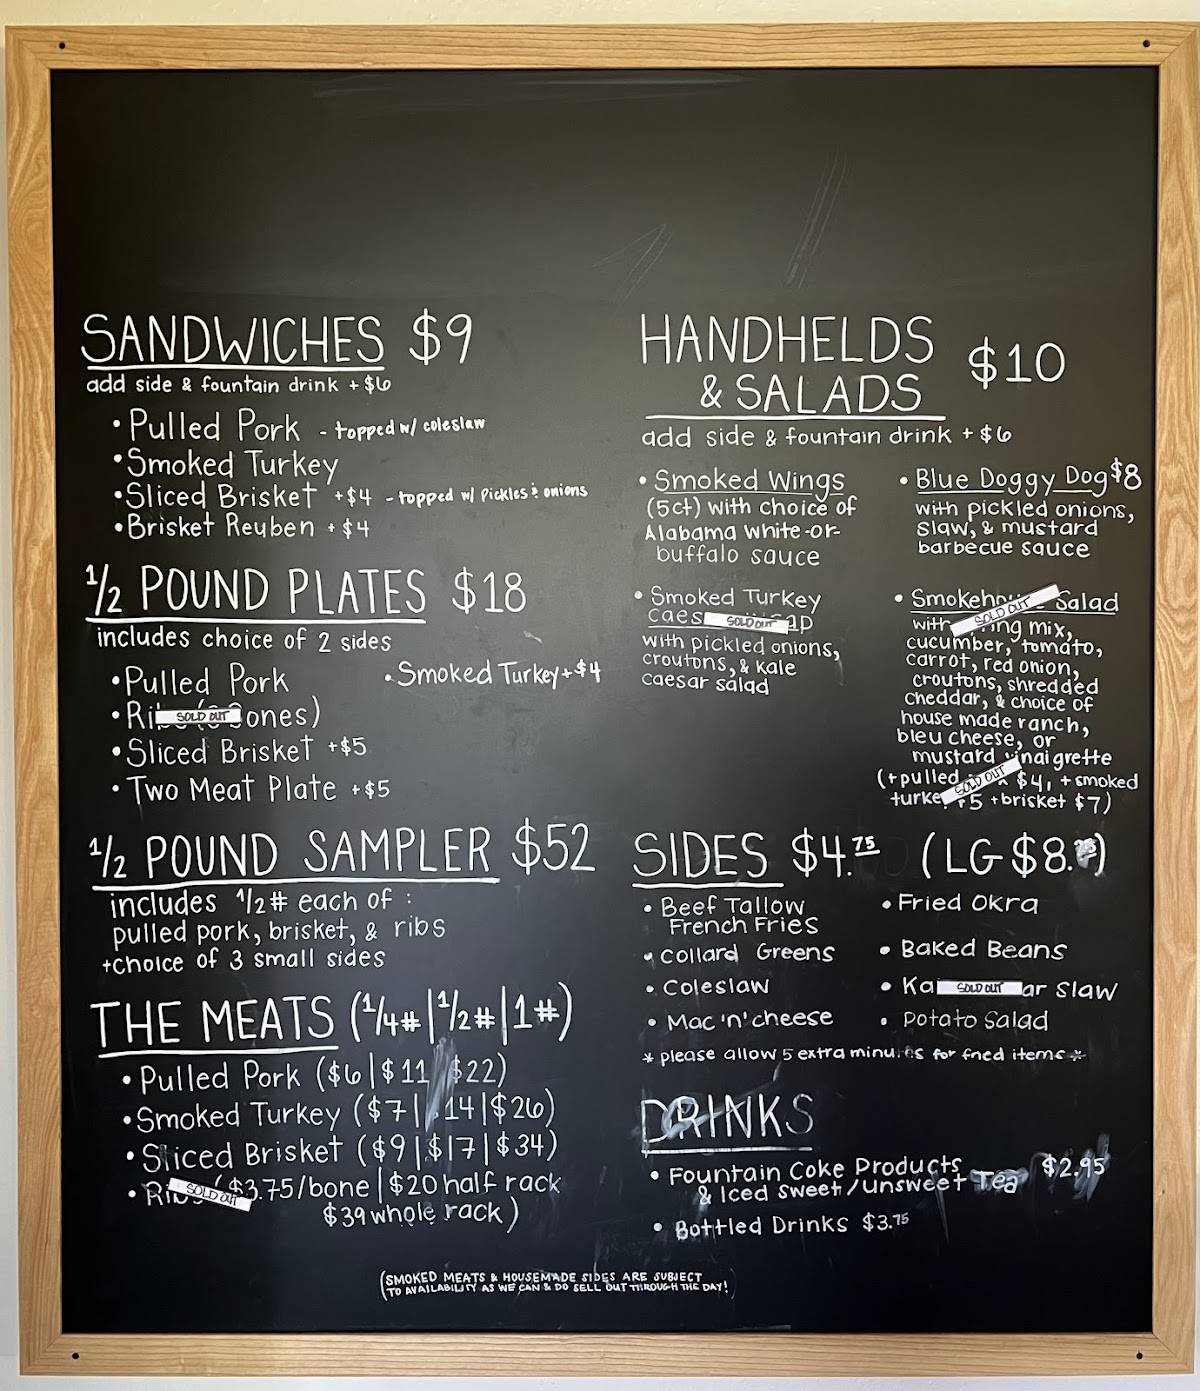 SANDWICHES $9
add side & fountain drink + $6
• Pulled Pork - topped w/ coleslaw
• Smoked Turkey
• Sliced Brisket +$4 - topped w/ pickles & onions
• Brisket Reuben + $4
1/2 POUND PLATES $18
includes choice of 2 sides
• Pulled Pork
• Smoked Turkey +$4
• Ri SOLD OUT ones)
• Sliced Brisket +$5
• Two Meat Plate +$5
1/2 POUND SAMPLER $52
includes 1/2# each of :
pulled pork, brisket, & ribs
+choice of 3 small sides
THE MEATS (1/4#|1/2#|1#)
• Pulled Pork ($6|$11|$22)
• Smoked Turkey ($7|14|$26)
• Sliced Brisket ($9|$17|$34)
• Ribs SOLD OUT ($3.75/bone|$20 half rack
$39 whole rack)
HANDHELDS $10
& SALADS
add side & fountain drink + $6
• Smoked Wings
(5ct) with choice of
Alabama white -or-
buffalo sauce
• Blue Doggy Dog $8
with pickled onions,
slaw, & mustard
barbecue sauce
• Smoked Turkey
caes SOLD OUT ap
with pickled onions,
croutons, & kale
caesar salad
• Smokeho SOLD OUT Salad
with ing mix,
cucumber, tomato,
carrot, red onion,
croutons, shredded
cheddar, & choice of
house made ranch,
bleu cheese, or
mustard vinaigrette
(+pulled SOLD OUT $4, +smoked
turke $5 +brisket $7)
SIDES $4.75 (LG $8.)
• Beef Tallow
French Fries
• Collard Greens
• Coleslaw
• Mac 'n' cheese
• Fried Okra
• Baked Beans
• Ka SOLD OUT ar Slaw
• Potato Salad
* please allow 5 extra minutes for fried items *
DRINKS
• Fountain Coke Products $2.95
& Iced Sweet/Unsweet Tea
• Bottled Drinks $3.75
(SMOKED MEATS & HOUSEMADE SIDES ARE SUBJECT
TO AVAILABILITY AS WE CAN & DO SELL OUT THROUGH THE DAY!)